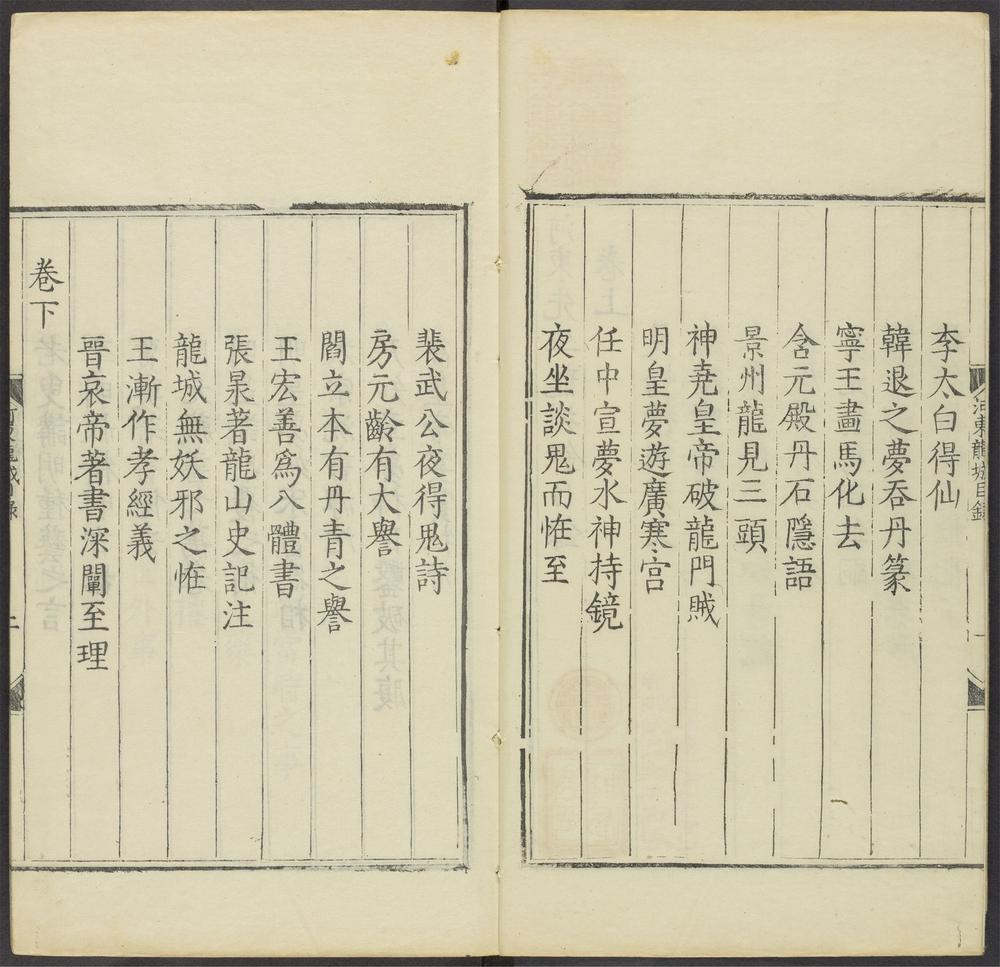 河東龍城目錄
一
李太白得仙
韓退之夢吞丹篆
寧王畫馬化去
含元殿丹石隱語
景州龍見三頭
神堯皇帝破龍門賊
明皇夢遊廣寒宮
任中宣夢水神持鏡
夜坐談鬼而恠至
裴武公夜得鬼詩
房元齡有大譽
閻立本有丹青之譽
王宏善為八體書
張杲著龍山史記注
龍城無妖邪之恠
王漸作孝經義
晉哀帝著書深闡至理
卷下
二